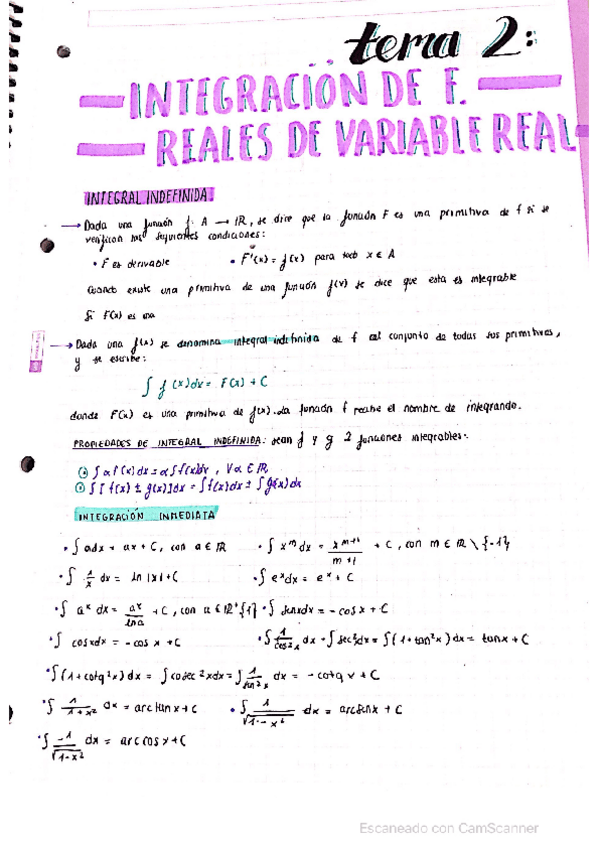 tema 2:
INTEGRACIÓN DE F.
REALES DE VARIABLE REAL
INTEGRAL INDEFINIDA.
→ Dada una función f: A → IR, se dice que la función F es una primitiva de f si se
verifican las siguientes condiciones:
• F es derivable • F'(x) = f(x) para todo x ∈ A
Cuando existe una primitiva de una función f(x) se dice que esta es integrable
Si F(x) es una
→ Dada una f(x) se denomina integral indefinida de f al conjunto de todas sus primitivas,
y se escribe:
∫ f(x)dx = F(x) + C
donde F(x) es una primitiva de f(x). La función f recibe el nombre de integrando.
PROPIEDADES DE INTEGRAL INDEFINIDA: sean f y g 2 funciones integrables.
① ∫ α f(x) dx = α ∫ f(x)dx , ∀ α ∈ IR
② ∫ [f(x) ± g(x)] dx = ∫ f(x)dx ± ∫ g(x)dx
INTEGRACIÓN INMEDIATA
• ∫ adx = ax + C, con a ∈ IR • ∫ x^m dx = x^(m+1)/(m+1) + C, con m ∈ IR \ {-1}
• ∫ 1/x dx = ln |x| + C • ∫ e^x dx = e^x + C
• ∫ a^x dx = a^x/lna + C, con a ∈ IR^+ {1} • ∫ senxdx = - cos x + C
• ∫ cosxdx = - cos x + C • ∫ 1/cos²x dx = ∫ sec²xdx = ∫ (1 + tan²x) dx = tanx + C
• ∫ (1 + cotg²x) dx = ∫ cosec²xdx = ∫ 1/sin²x dx = - cotg x + C
• ∫ 1/(1+x²) dx = arc tan x + C • ∫ 1/√(1-x²) dx = arcsen x + C
• ∫ -1/√(1-x²) dx = arc cos x + C
Escaneado con CamScanner